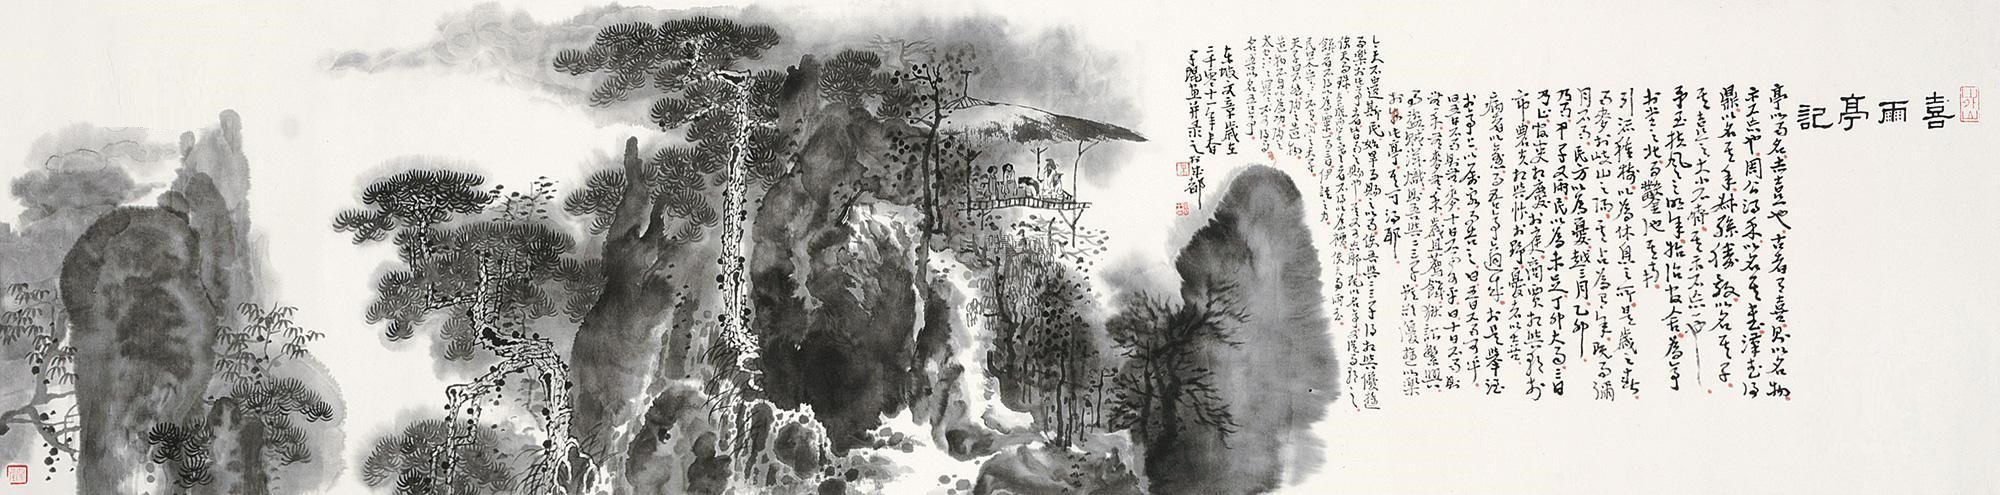 喜雨亭記
亭以雨名志喜也古者有喜則以名物
示不忘也周公得禾以名其書漢武得
鼎以名其年叔孫勝狄以名其子
其喜之大小不齊其示不忘一也
予至扶風之明年始治官舍為亭
於堂之北而鑿池其南
引流種樹以為休息之所是歲之春
雨麥於岐山之陽其占為有年既而彌
月不雨民方以為憂越三月乙卯
乃雨甲子又雨民以為未足丁卯大雨三日
乃止官吏相慶於庭商賈相與歌於
市農夫相與忭於野憂者以喜
病者以愈而吾亭適成於是舉酒
於亭上以屬客而告之曰五日不雨可乎
曰五日不雨則無麥十日不雨可乎曰十日不雨則
無禾無麥無禾歲且薦饑獄訟繁興
而盜賊滋熾則吾與二三子雖欲優游以樂
於此亭其可得耶
今天不遺斯民始旱而賜之以雨使吾與二三子得相與優游
而樂於此亭者皆雨之賜也其又可忘耶既以名亭又從而歌之
使天而雨珠寒者不得以為襦使天而雨玉
饑者不得以為粟一雨三日伊誰之力
民曰太守太守不有歸之天子
天子曰不然歸之造物
造物不自以為功歸之
太空太空冥冥不可得而
名吾以名吾亭
東坡文辛卯歲在
二千零十一年上春